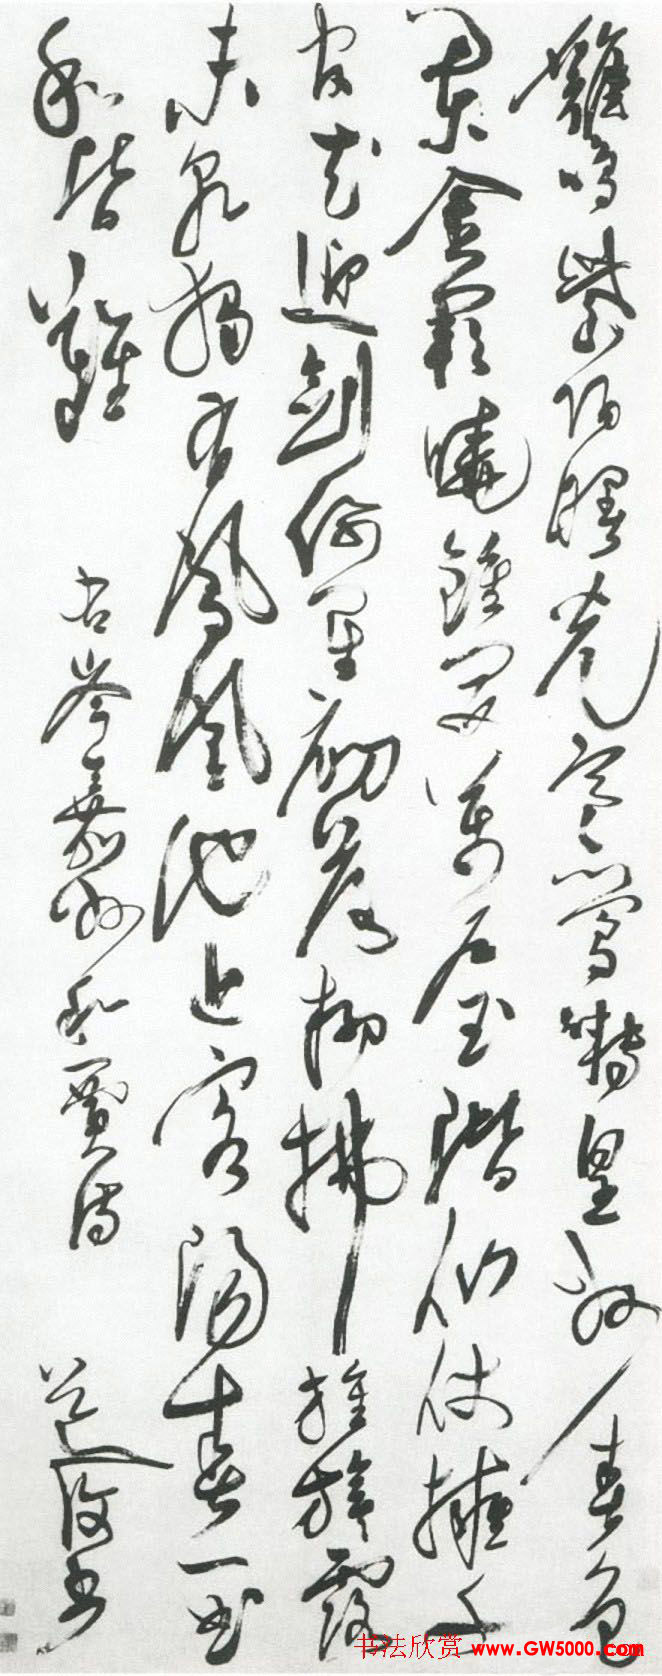 雞鳴紫陌曙光寒鶯囀皇州春色
闌金闕曉鐘開萬戶玉階仙仗擁千
官花迎劍佩星初落柳拂旌旗露
未乾獨有鳳凰池上客陽春一曲
和皆難 右岑嘉州和賈詩 道復書
书法欣赏 www.GW5000.com